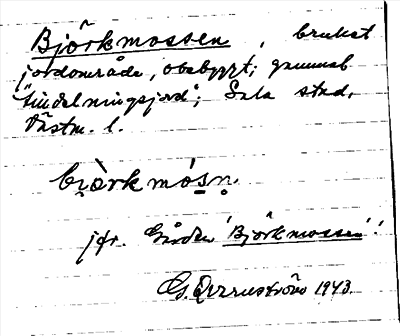 Björkmossen, brukat
jordområde, obebyggt; gammal
"tindelningsjord"; Sala stad,
Västm. l.
bi̯òrkmós̠n̥.
jfr. Gården 'Björkmossen'!
G. 1943.